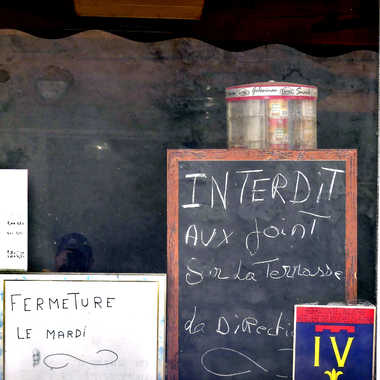 INTERDIT
AUX joinT
Sur La Terrasse
La Directi
FERMETURE
LE MARDi
IV